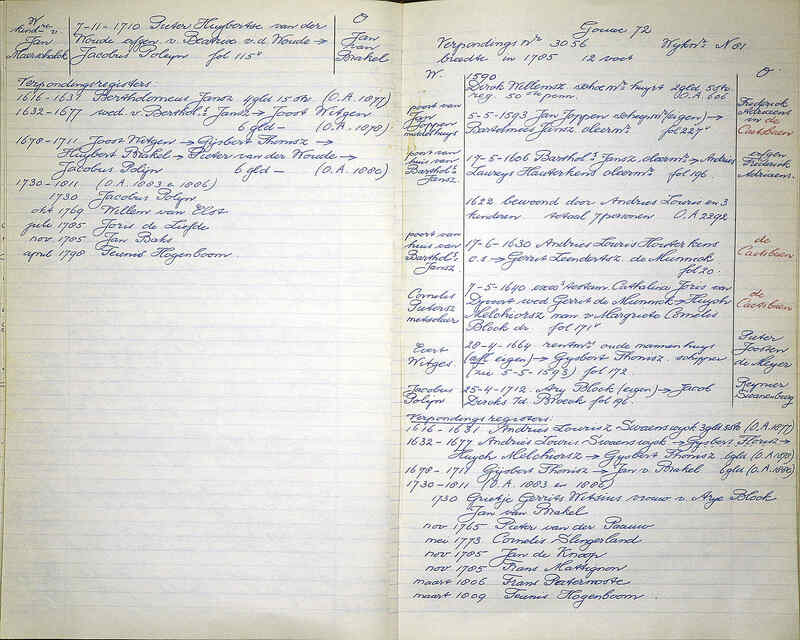 W.
kindre v.
Jan
Maarschalck
7-11-1710 Pieter Huybertse van der
Woude erfgen v. Beatrix v.d. Woude →
Jacobus Poleyn fol 115v
O
Jan
van
Brakel
Verpondingsregisters.
1616-1631 Bartholomeus Jansz 4 gls 15 sts (O.A. 1877)
1632-1677 wed v. Barthols Jansz → Joost Witgen
6 gld - (O.A. 1878)
1678-1711 Joost Witgen → Gijsbert Thomisz →
Huijbert Brakel → Pieter van der Woude →
Jacobus Polijn 6 gld - (O.A. 1880)
1730-1811 (O.A. 1883 en 1886)
1730 Jacobus Polijn
okt 1769 Willem van Elst
juli 1785 Joris de Liefde
nov 1785 Jan Baks
april 1798 Teunis Hogenboom.
Gouwe 72
Verpondings No 3056 Wijk No N 81
breedte in 1785 12 voet
W.
1590
O.
Dirck Willemsz schoenmr huyrt 2 gld 5 sts
reg. 50ste penn. O.A. 606
poort van
Jan
Joppen
middelhuys
5-5-1593 Jan Joppen schoenmr (eigen) →
Bartolmies Jansz cleermr fol 227v
Frederick
Adriaens
in de
Caetsbaen
poort van
huis van
Barthols
Jansz
17-5-1606 Barthols Jansz cleermr → Andries
Laureys Houterkens cleermr fol 196
erfgen
Frederick
Adriaens.
1622 bewoond door Andries Louris en 3
kinderen totaal 7 personen O.A 2292
poort van
huis van
Barthols
Jansz.
17-6-1630 Andries Louris Houterkens
c.s → Gerrit Leendertsz. de Munnick
fol 20.
de
Caetsbaen
Cornelis
Pietersz
metselaer
7-5-1640 execrs testam Cathalina Joris van
Dijvoet wed Gerrit de Munnick → Huych
Melchiorsz man v Margriete Cornelis
Block dr. fol 171v
de
Caetsbaen
Evert
Witges.
28-4-1664 rentmr oude mannenhuys
(aff eigen) → Gijsbert Thomisz schipper
(zie 5-5-1593) fol 172.
Pieter
Joosten
de Meyer
Jacobus
Polijn
25-4-1712. Ary Block (eigen) → Jacob
Dircks vd. Broeck fol 196.
Reynier
Swanenburg
Verpondingsregisters.
1616-1631 Andries Lourisz Swaenswyck 3 gls 5 sts (O.A. 1877)
1632-1677 Andries Louris Swaenswyck → Gysbert Florisz →
Huych Melchiorsz → Gysbert Thomisz 6 gls (O.A. 1878)
1678-1711 Gijsbert Thomisz → Jan v. Brakel 6 gls (O.A. 1880)
1730-1811 (O.A. 1883 en 1886)
1730 Grietje Gerrits Witsius vrouw v. Arye Block
Jan van Brakel
nov 1765 Pieter van der Paauw
mei 1773 Cornelis Slingerland
nov 1785 Jan de Knoop
nov 1785 Frans Mattignon
maart 1806 Frans Paternoste
maart 1809 Teunis Hogenboom.